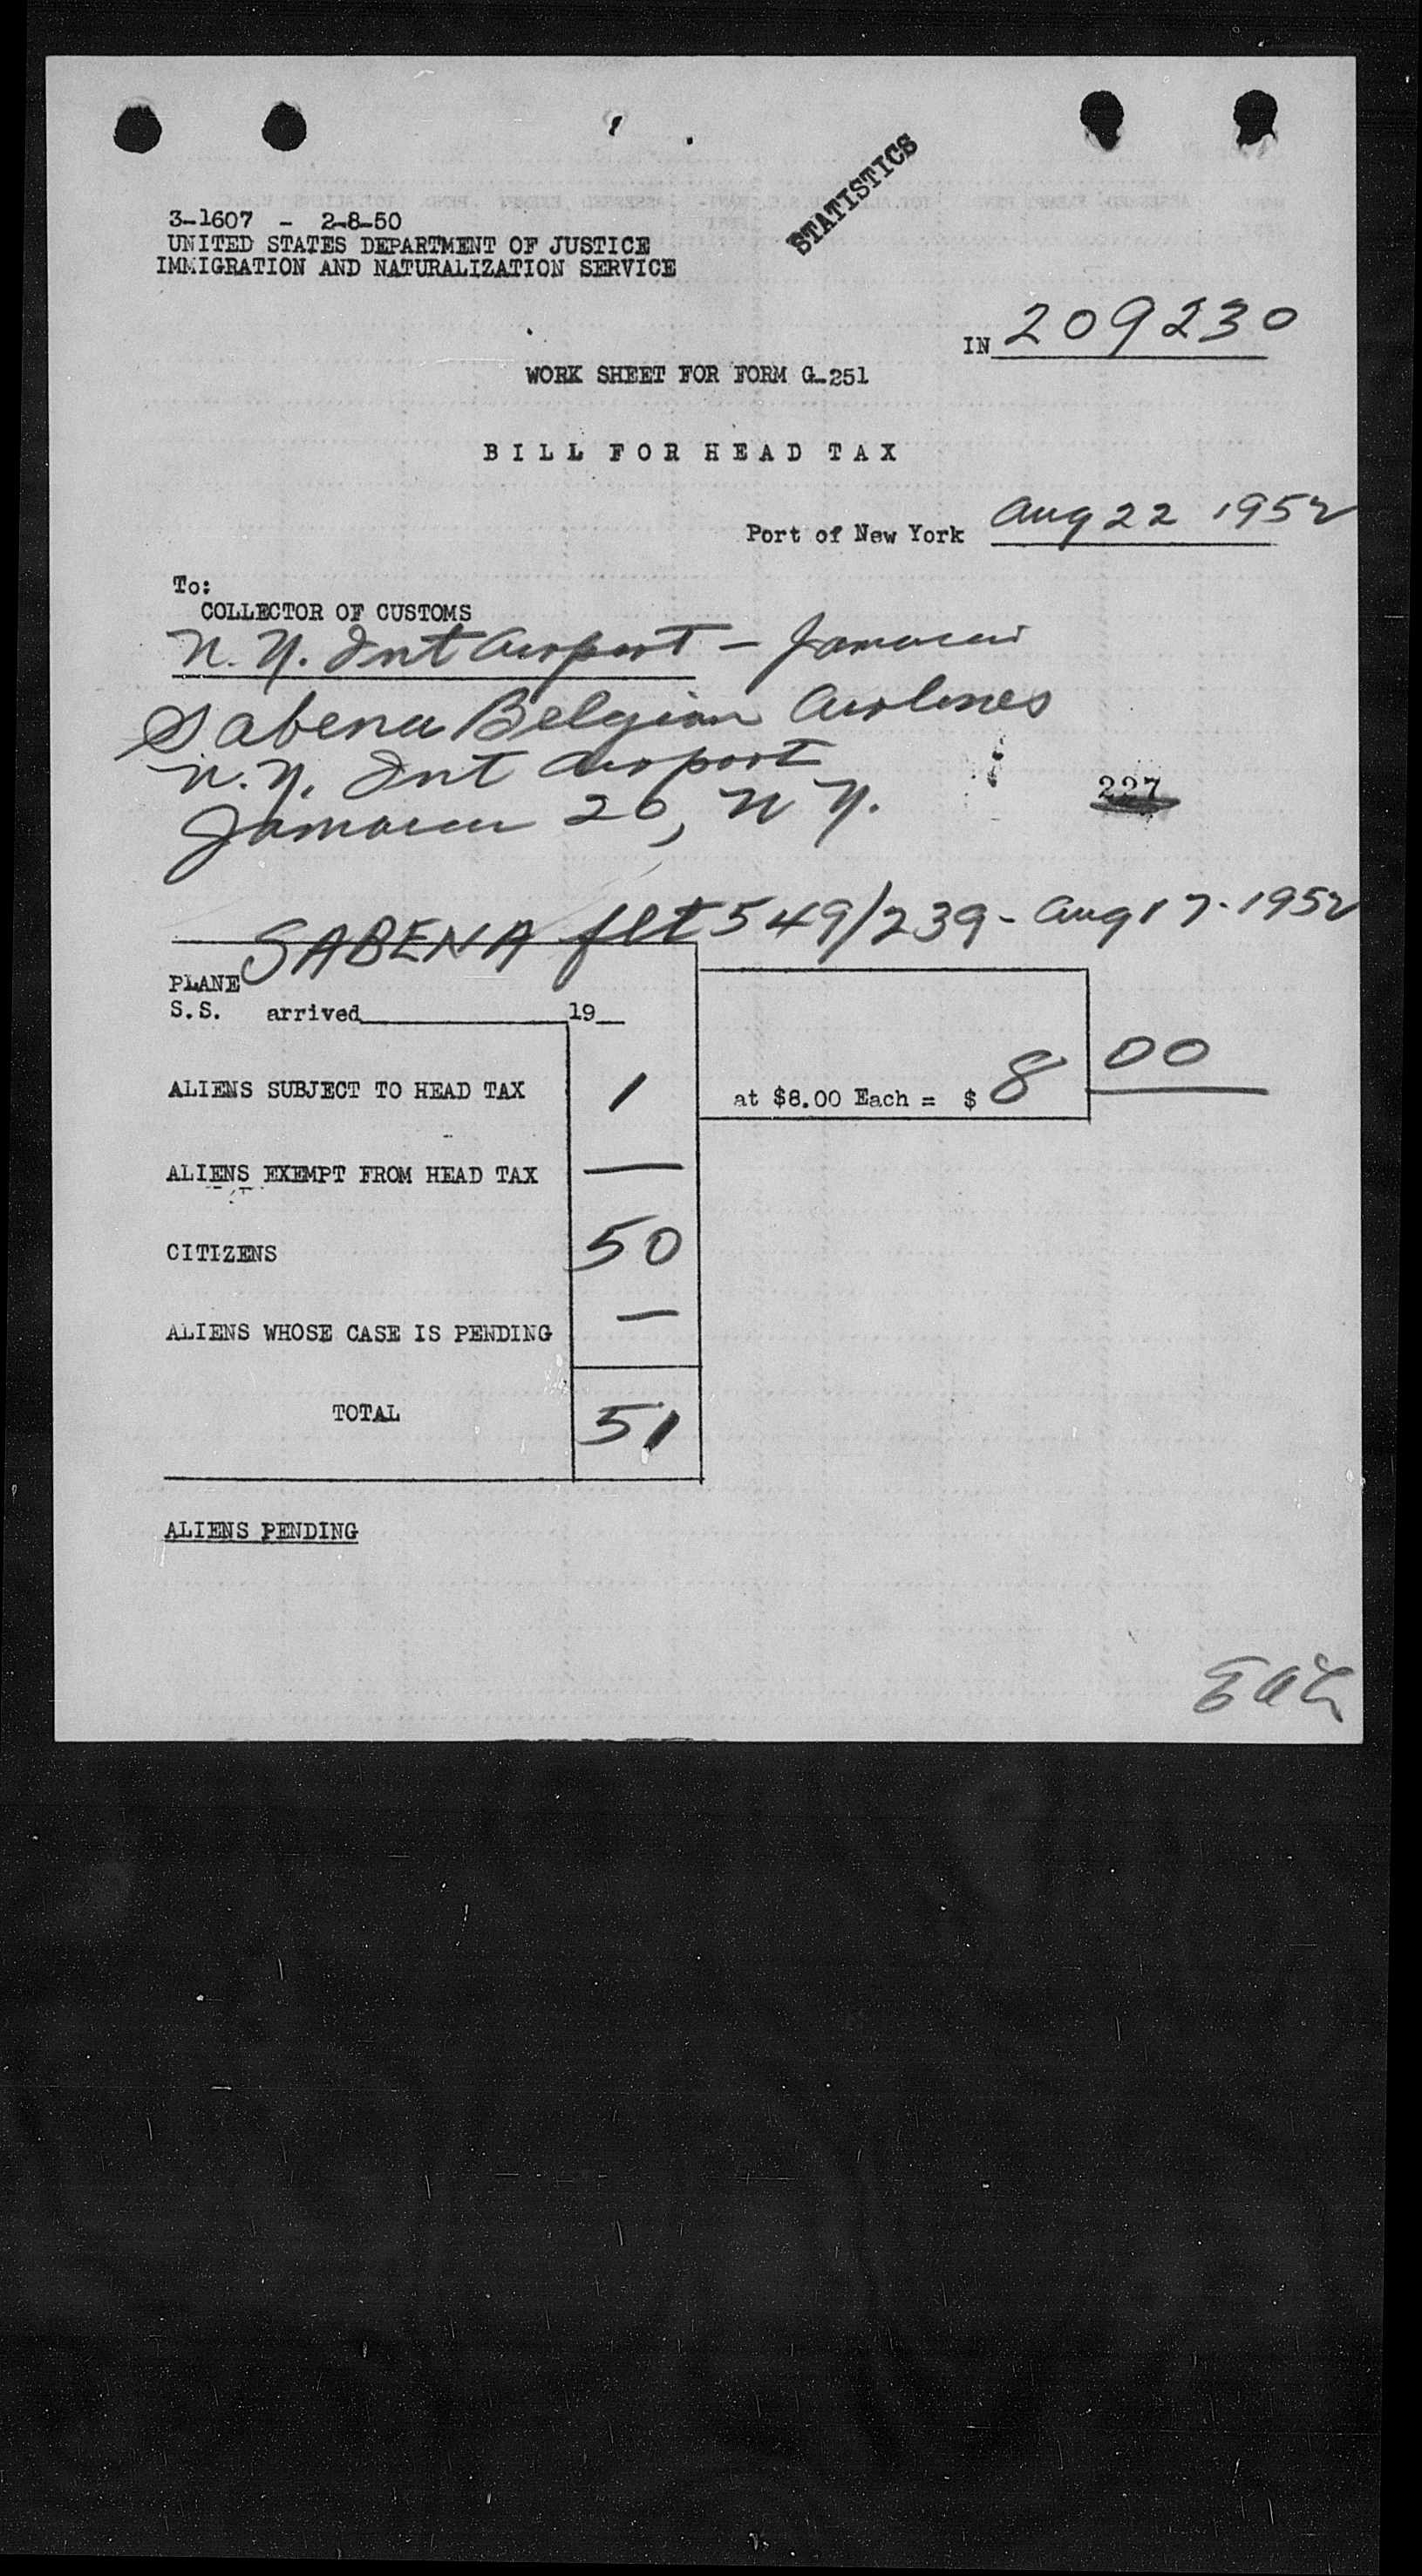 STATISTICS
3-1607 - 2-8-50
UNITED STATES DEPARTMENT OF JUSTICE
IMMIGRATION AND NATURALIZATION SERVICE
IN 209230
WORK SHEET FOR FORM G-251
BILL FOR HEAD TAX
Port of New York Aug 22 1952
To:
COLLECTOR OF CUSTOMS
N.Y. Int Airport - Jamaica
Sabena Belgian Airlines
N.Y. Int Airport
227
Jamaica 20, N Y.
SABENA flt 549/239 - Aug 17 - 1952
PLANE
S.S. arrived 19
ALIENS SUBJECT TO HEAD TAX 1 at $8.00 Each = $ 8 00
ALIENS EXEMPT FROM HEAD TAX —
CITIZENS 50
ALIENS WHOSE CASE IS PENDING —
TOTAL 51
ALIENS PENDING